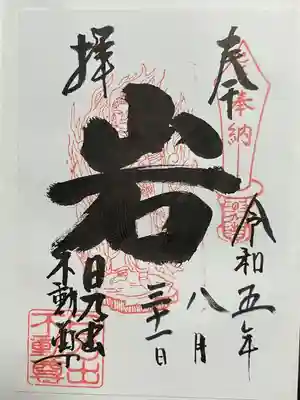 奉
拝
奉納
岩
令和五年
八月
三十一日
日乃出
不動尊
不動尊